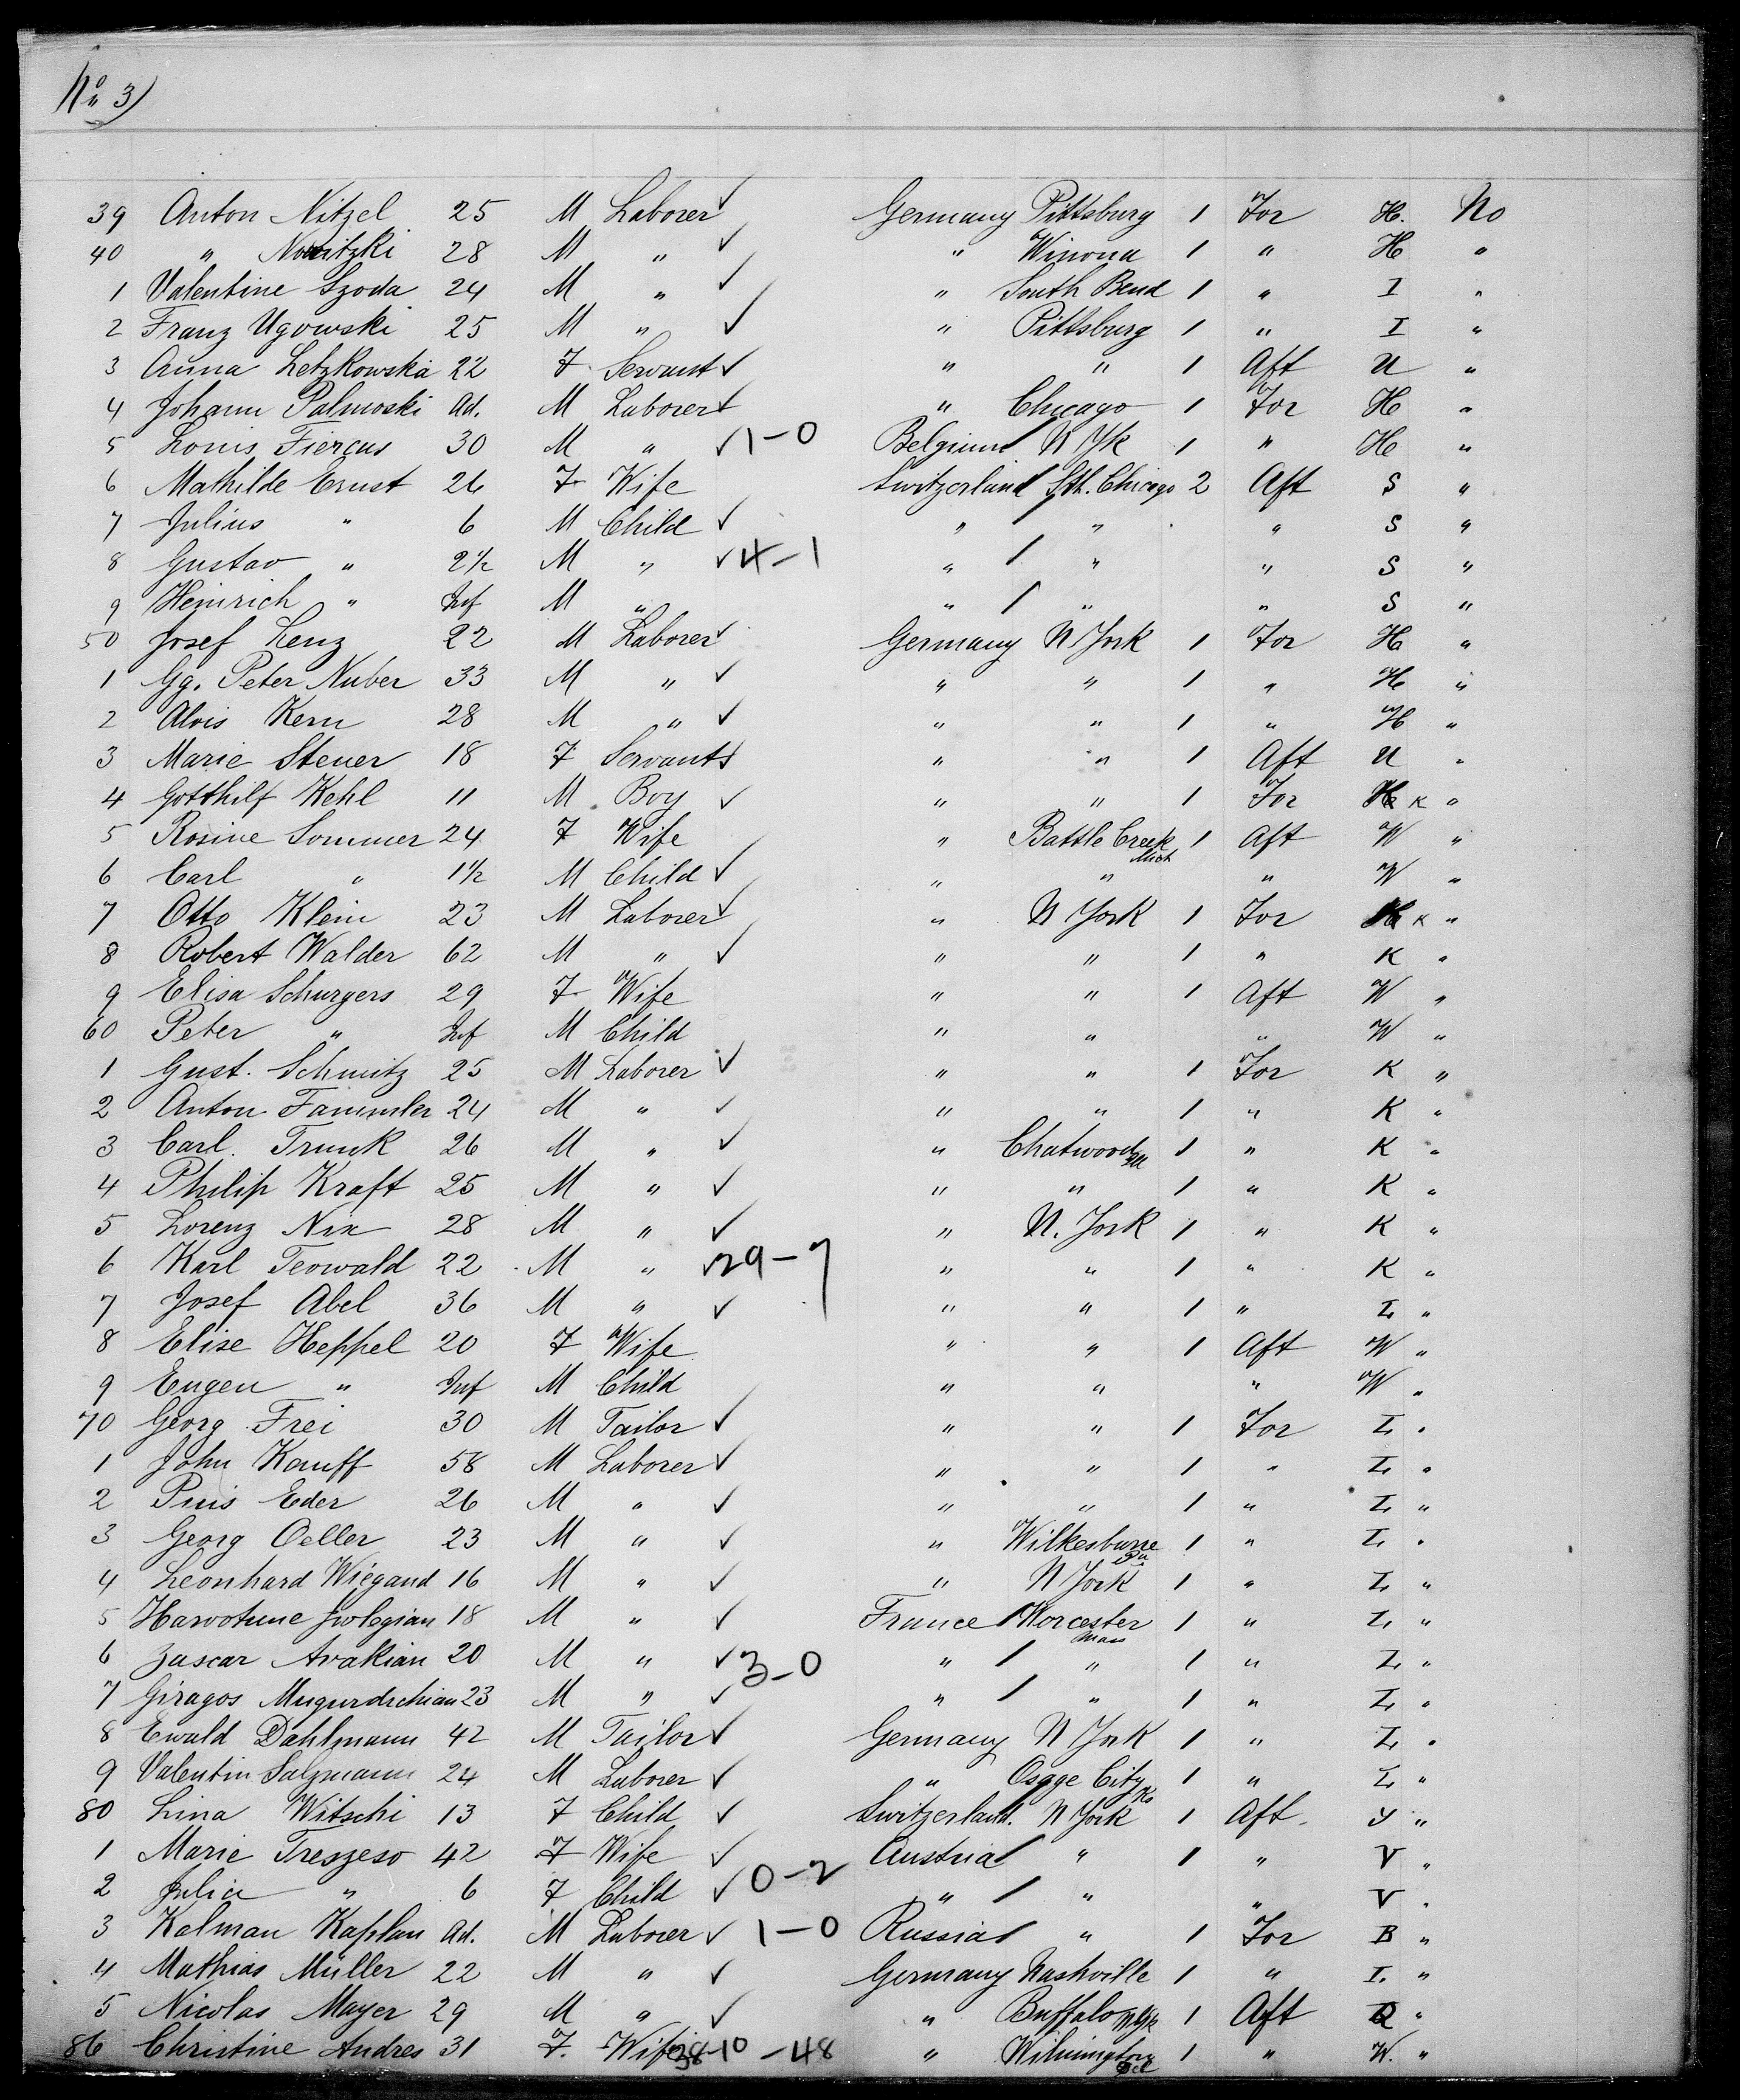 No 3)
39 Anton Nitzel 25 M Laborer ✓ Germany Pittsburg 1 For H. No
40 " Novitzki 28 M " ✓ " Winona 1 " H "
1 Valentine Szoda 24 M " ✓ " South Bend 1 " I "
2 Franz Ugowski 25 M " ✓ " Pittsburg 1 " I "
3 Anna Letzkowska 22 F Servant ✓ " " 1 Aft U "
4 Johann Palmoski Ad. M Laborer ✓ " Chicago 1 For H "
5 Louis Fiercus 30 M " ✓ 1-0 Belgium N Yk 1 " H "
6 Mathilde Ernst 26 F Wife Switzerland Sth. Chicago 2 Aft S "
7 Julius " 6 M Child ✓ " " " S "
8 Gustav " 2½ M " ✓ 4-1 " " " S "
9 Heinrich " Inf M " " " " S "
50 Josef Lenz 22 M Laborer ✓ Germany N York 1 For H "
1 Gg. Peter Nuber 33 M " ✓ " " 1 " H "
2 Alois Kern 28 M " ✓ " " 1 " H "
3 Marie Steuer 18 F Servant ✓ " " 1 Aft U "
4 Gotthilf Kehl 11 M Boy ✓ " " 1 For K "
5 Rosine Sommer 24 F Wife " Battle Creek Mich 1 Aft W "
6 Carl " 1½ M Child ✓ " " " W "
7 Otto Klein 23 M Laborer ✓ " N York 1 For K "
8 Robert Walder 62 M " ✓ " " 1 " K "
9 Elisa Schurgers 29 F Wife " " 1 Aft W "
60 Peter " Inf M Child " " " W "
1 Gust. Schmitz 25 M Laborer ✓ " " 1 For K "
2 Anton Fammler 24 M " ✓ " " 1 " K "
3 Carl. Trunk 26 M " ✓ " Chatwood 1 " K "
4 Philip Kraft 25 M " ✓ " " 1 " K "
5 Lorenz Nix 28 M " ✓ " N. York 1 " K "
6 Karl Teowald 22 M " ✓ 29-7 " " 1 " K "
7 Josef Abel 36 M " ✓ " " 1 " L "
8 Elise Heppel 20 F Wife " " 1 Aft W "
9 Eugen " Inf M Child " " " W "
70 Georg Frei 30 M Tailor ✓ " " 1 For L "
1 John Kauff 58 M Laborer ✓ " " 1 " L "
2 Pius Eder 26 M " ✓ " " 1 " L "
3 Georg Oeller 23 M " ✓ " Wilkesbarre Pa 1 " L "
4 Leonhard Wiegand 16 M " ✓ " N York 1 " L "
5 Harootune 18 M " ✓ France Worcester Mass 1 " L "
6 Zascar Avakian 20 M " ✓ 3-0 " " 1 " L "
7 Giragos Mugurdichian 23 M " ✓ " " 1 " L "
8 Ewald Dahlmann 42 M Tailor ✓ Germany N York 1 " L "
9 Valentin Salzmann 24 M Laborer ✓ " Osage City Ks 1 " L "
80 Lina Witschi 13 F Child ✓ Switzerland. N York 1 Aft. Y "
1 Marie Treszeso 42 F Wife ✓ Austria " 1 " V "
2 Julia " 6 F Child ✓ 0-2 " " " V "
3 Kalman Kaplan Ad. M Laborer ✓ 1-0 Russia " 1 For B "
4 Mathias Müller 22 M " ✓ Germany Nashville 1 " I. "
5 Nicolas Mayer 29 M " ✓ " Buffalo N Yk 1 Aft Q "
86 Christine Andres 31 F. Wife 38-10-48 " Wilmington Del 1 " W. "